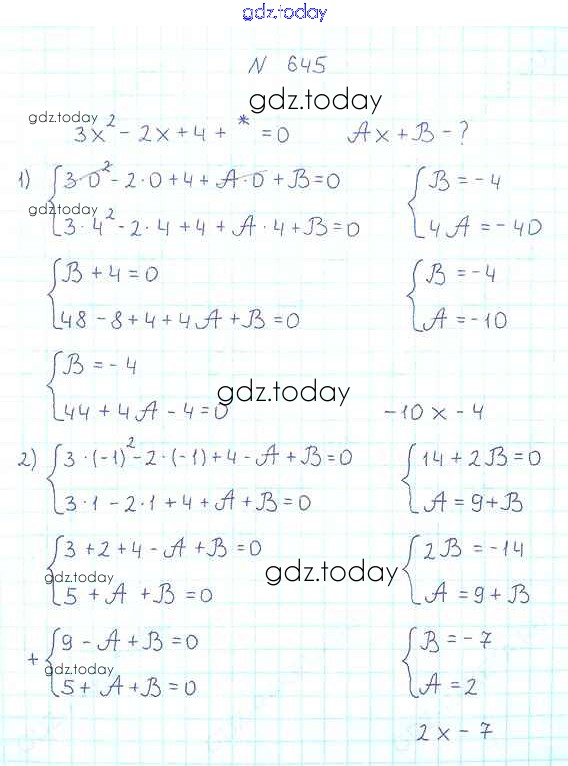 gdz.today
N 645
gdz.today
gdz.today
3x² - 2x + 4 + * = 0 Ax + B - ?
1) { 3·0² - 2·0 + 4 + A·0 + B = 0
gdz.today
3·4² - 2·4 + 4 + A·4 + B = 0
{ B = -4
4A = -40
{ B + 4 = 0
48 - 8 + 4 + 4A + B = 0
{ B = -4
A = -10
{ B = -4
44 + 4A - 4 = 0
gdz.today
-10x - 4
2) { 3·(-1)² - 2·(-1) + 4 - A + B = 0
3·1 - 2·1 + 4 + A + B = 0
{ 14 + 2B = 0
A = 9 + B
{ 3 + 2 + 4 - A + B = 0
gdz.today
5 + A + B = 0
gdz.today
{ 2B = -14
A = 9 + B
+ { 9 - A + B = 0
gdz.today
5 + A + B = 0
{ B = -7
A = 2
2x - 7